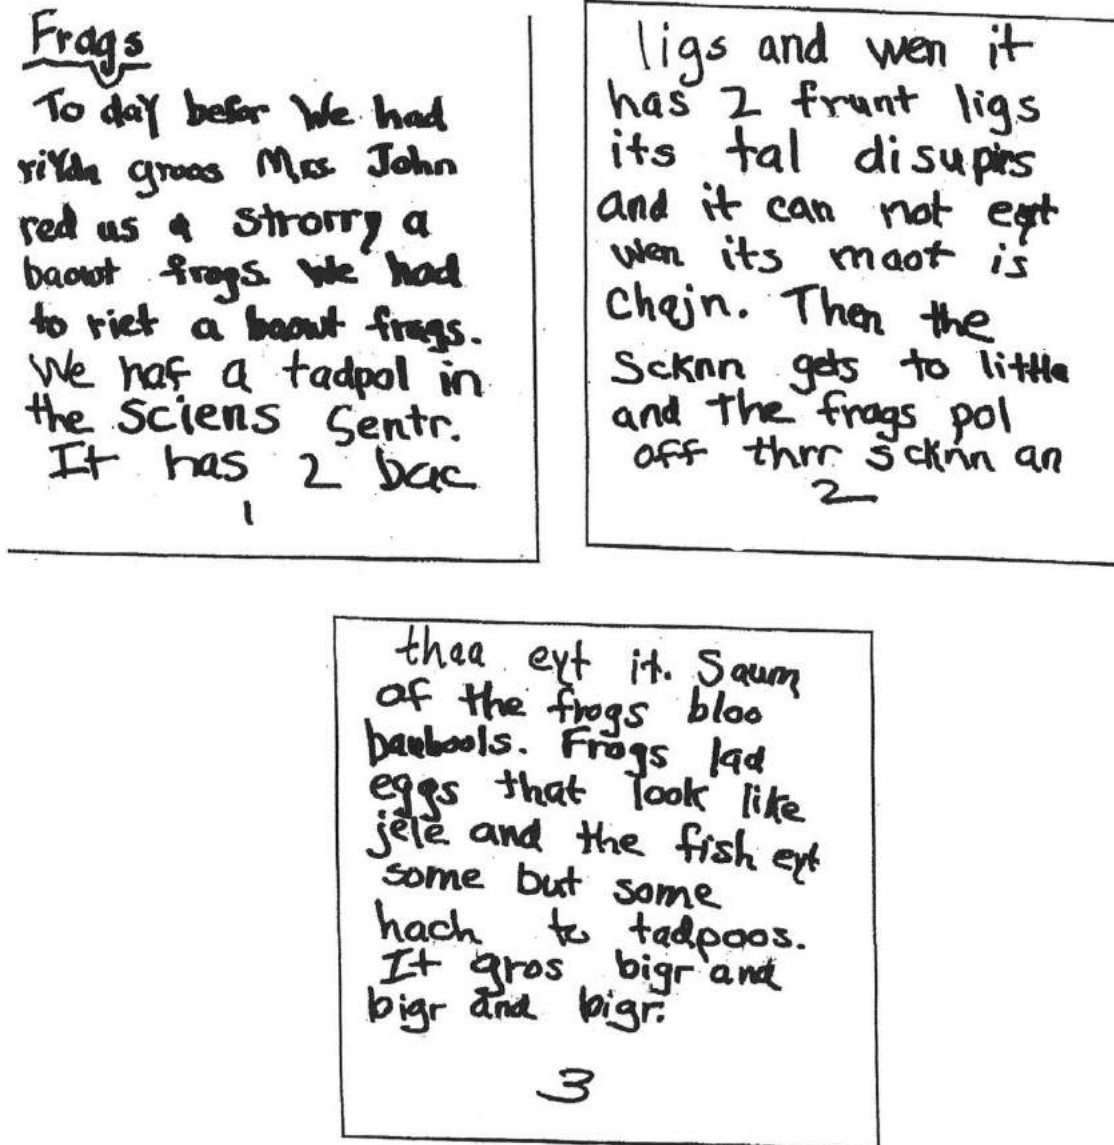 Frags
To day befor We had
riYda groos Mrs. John
red us a strorry a
baowt frogs. We had
to riet a baowt frags.
We haf a tadpol in
the sciens Sentr.
It has 2 bac
1
ligs and wen it
has 2 frunt ligs
its tal disupirs
and it can not eyt
wen its maot is
Chajn. Then the
Scknn gets to little
and the frogs pol
off thrr scknn an
2
thaa eyt it. Saum
of the frogs bloo
baubools. Frogs lad
eggs that look like
jele and the fish eyt
some but some
hach to tadpoos.
It gros bigr and
bigr and bigr.
3